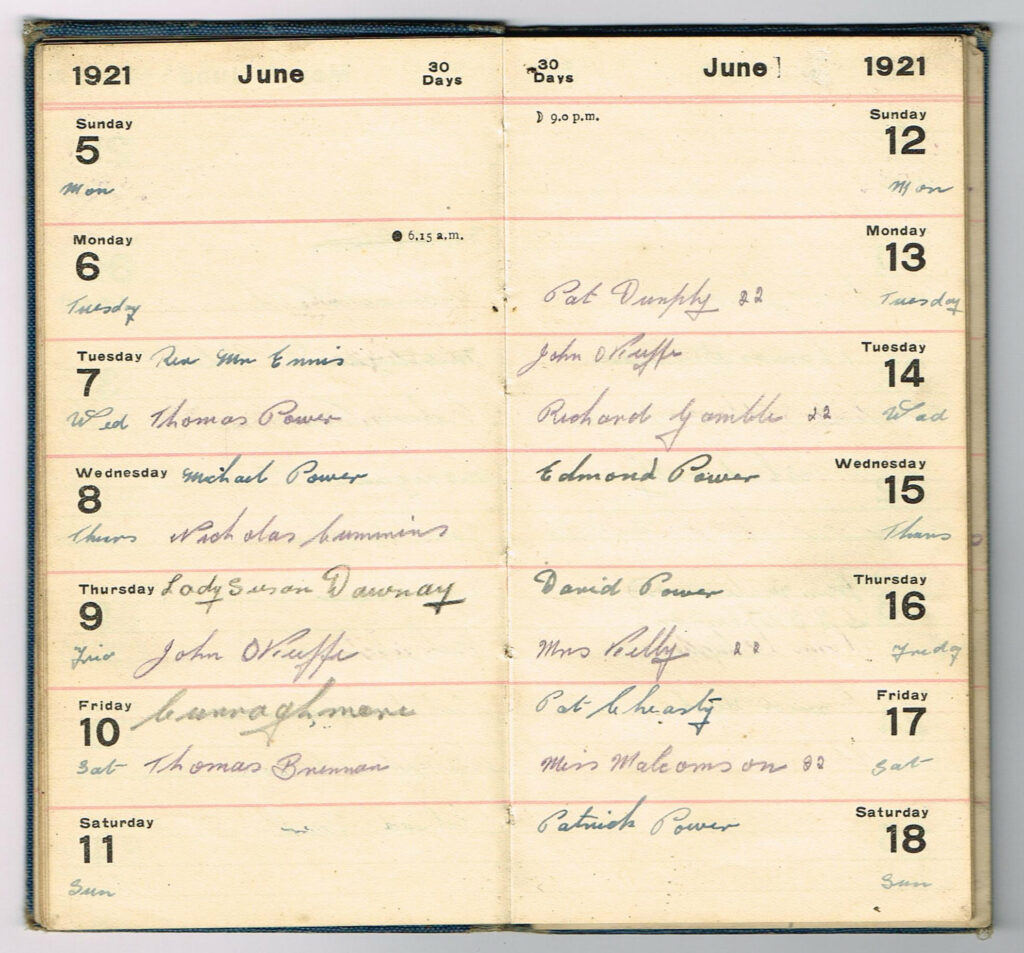 1921 June 30 Days
Sunday
5
Mon
Monday
6 6.15 a.m.
Tuesday
Tuesday Rev Mr Ennis
7
Wed Thomas Power
Wednesday Michael Power
8
Thurs Nicholas Cummins
Thursday Lady Susan Dawnay
9
Frid John OKeeffe
Friday Curraghmore
10
Sat Thomas Brennan
Saturday
11
Sun
30 Days June 1921
9.0 p.m. Sunday
12
Mon
Monday
13
Pat Dunphy 22 Tuesday
John OKeeffe Tuesday
14
Richard Gamble 22 Wed
Edmond Power Wednesday
15
Thurs
David Power Thursday
16
Mrs Kelly 22 Friday
Pat Cheasty Friday
17
Miss Malcomson 22 Sat
Patrick Power Saturday
18
Sun